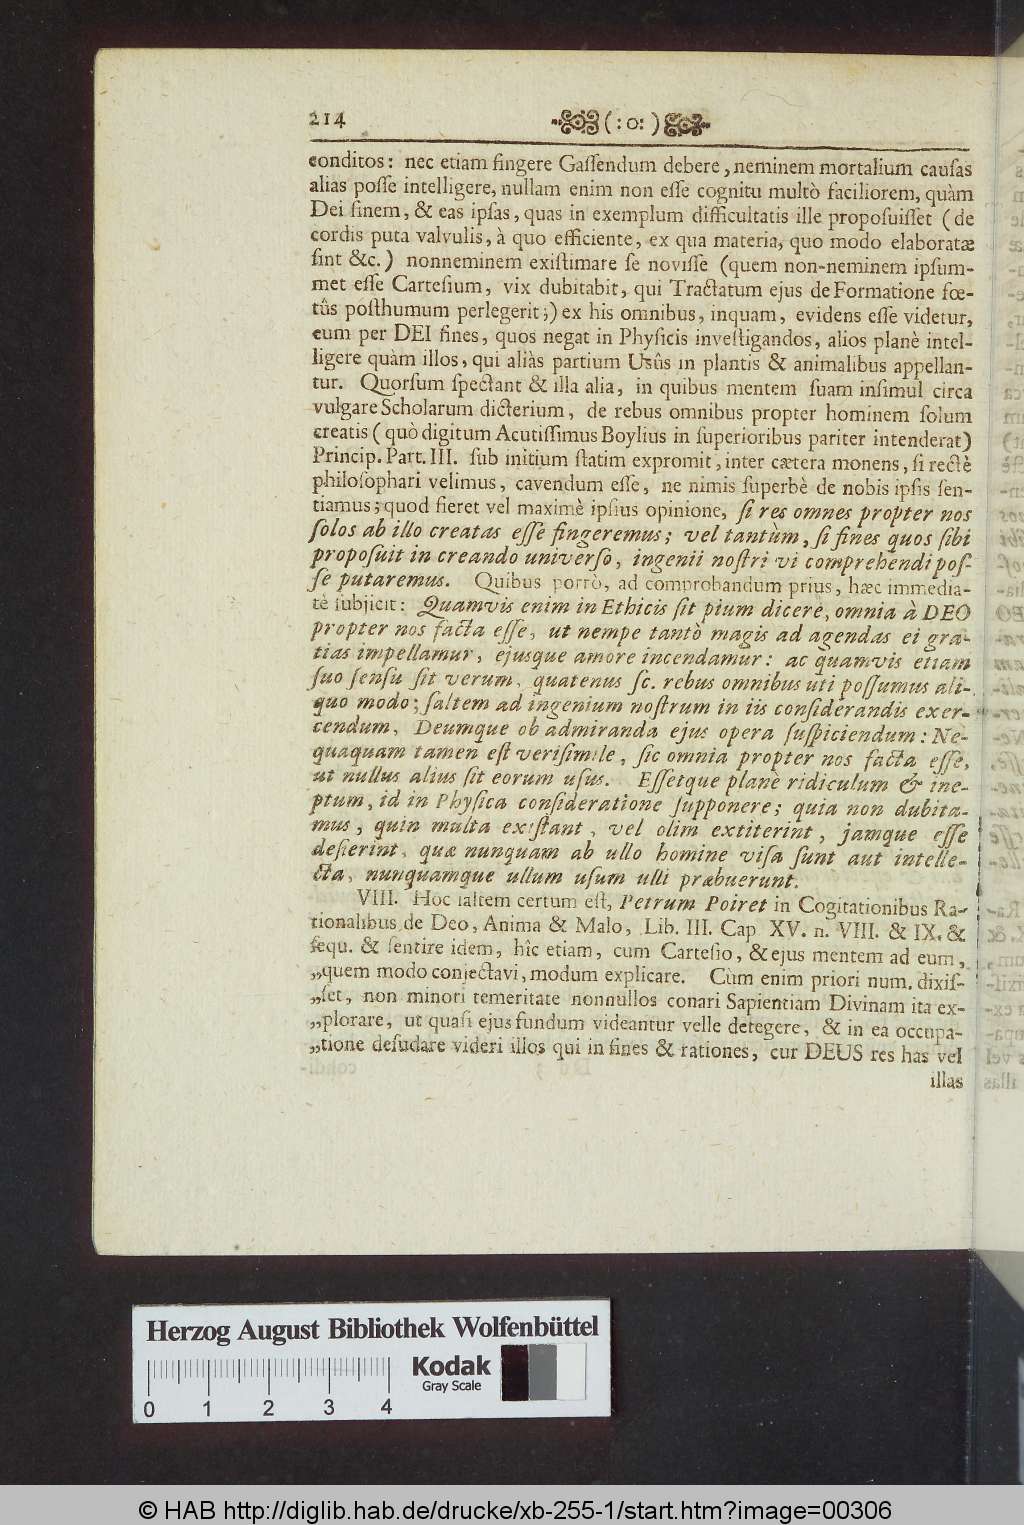 214 (:o:)
conditos: nec etiam fingere Gaſſendum debere, neminem mortalium cauſas
alias poſſe intelligere, nullam enim non eſſe cognitu multò faciliorem, quàm
Dei finem, & eas ipſas, quas in exemplum difficultatis ille propoſuiſſet (de
cordis puta valvulis, à quo efficiente, ex qua materia, quo modo elaboratæ
ſint &c.) nonneminem exiſtimare ſe noviſſe (quem non-neminem ipſum-
met eſſe Carteſium, vix dubitabit, qui Tractatum ejus de Formatione fœ-
tûs poſthumum perlegerit;) ex his omnibus, inquam, evidens eſſe videtur,
eum per DEI fines, quos negat in Phyſicis inveſtigandos, alios planè intel-
ligere quàm illos, qui aliàs partium Uſûs in plantis & animalibus appellan-
tur. Quorſum ſpectant & illa alia, in quibus mentem ſuam inſimul circa
vulgare Scholarum dicterium, de rebus omnibus propter hominem ſolum
creatis (quò digitum Acutiſſimus Boylius in ſuperioribus pariter intenderat)
Princip. Part. III. ſub initium ſtatim expromit, inter cætera monens, ſi rectè
philoſophari velimus, cavendum eſſe, ne nimis ſuperbè de nobis ipſis ſen-
tiamus; quod fieret vel maximè ipſius opinione, ſi res omnes propter nos
ſolos ab illo creatas eſſe fingeremus; vel tantùm, ſi fines quos ſibi
propoſuit in creando univerſo, ingenii noſtri vi comprehendi poſ-
ſe putaremus. Quibus porrò, ad comprobandum prius, hæc immedia-
tè ſubjicit: Quamvis enim in Ethicis ſit pium dicere, omnia à DEO
propter nos facta eſſe, ut nempe tantò magis ad agendas ei gra-
tias impellamur, ejusque amore incendamur: ac quamvis etiam
ſuo ſenſu ſit verum, quatenus ſc. rebus omnibus uti poſſumus ali-
quo modo; ſaltem ad ingenium noſtrum in iis conſiderandis exer-
cendum, Deumque ob admiranda ejus opera ſuſpiciendum: Ne-
quaquam tamen eſt veriſimile, ſic omnia propter nos facta eſſe,
ut nullus alius ſit eorum uſus. Eſſetque planè ridiculum & ine-
ptum, id in Phyſica conſideratione ſupponere; quia non dubita-
mus, quin multa exiſtant, vel olim extiterint, jamque eſſe
deſierint, quæ nunquam ab ullo homine viſa ſunt aut intelle-
cta, nunquamque ullum uſum ulli præbuerunt.
VIII. Hoc ſaltem certum eſt, Petrum Poiret in Cogitationibus Ra-
tionalibus de Deo, Anima & Malo, Lib. III. Cap XV. n. VIII. & IX. &
ſequ. & ſentire idem, hîc etiam, cum Carteſio, & ejus mentem ad eum,
„quem modo conjectavi, modum explicare. Cùm enim priori num. dixiſ-
„ſet, non minori temeritate nonnullos conari Sapientiam Divinam ita ex-
„plorare, ut quaſi ejus fundum videantur velle detegere, & in ea occupa-
„tione deſudare videri illos qui in fines & rationes, cur DEUS res has vel
illas
Herzog August Bibliothek Wolfenbüttel
Kodak
Gray Scale
0 1 2 3 4
© HAB http://diglib.hab.de/drucke/xb-255-1/start.htm?image=00306